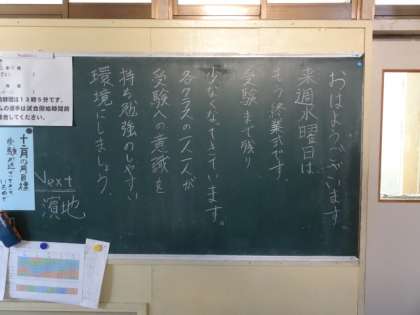 おはようございます。
来週水曜日は
もう終業式です。
受験まで残り
少なくなってきています。
各クラスの一人一人が
受験への意識を
持ち勉強のしやすい
環境にしましょう。
Next
濱地
は13時5分です。
試合開始時間前
してください。
十二月の月目標